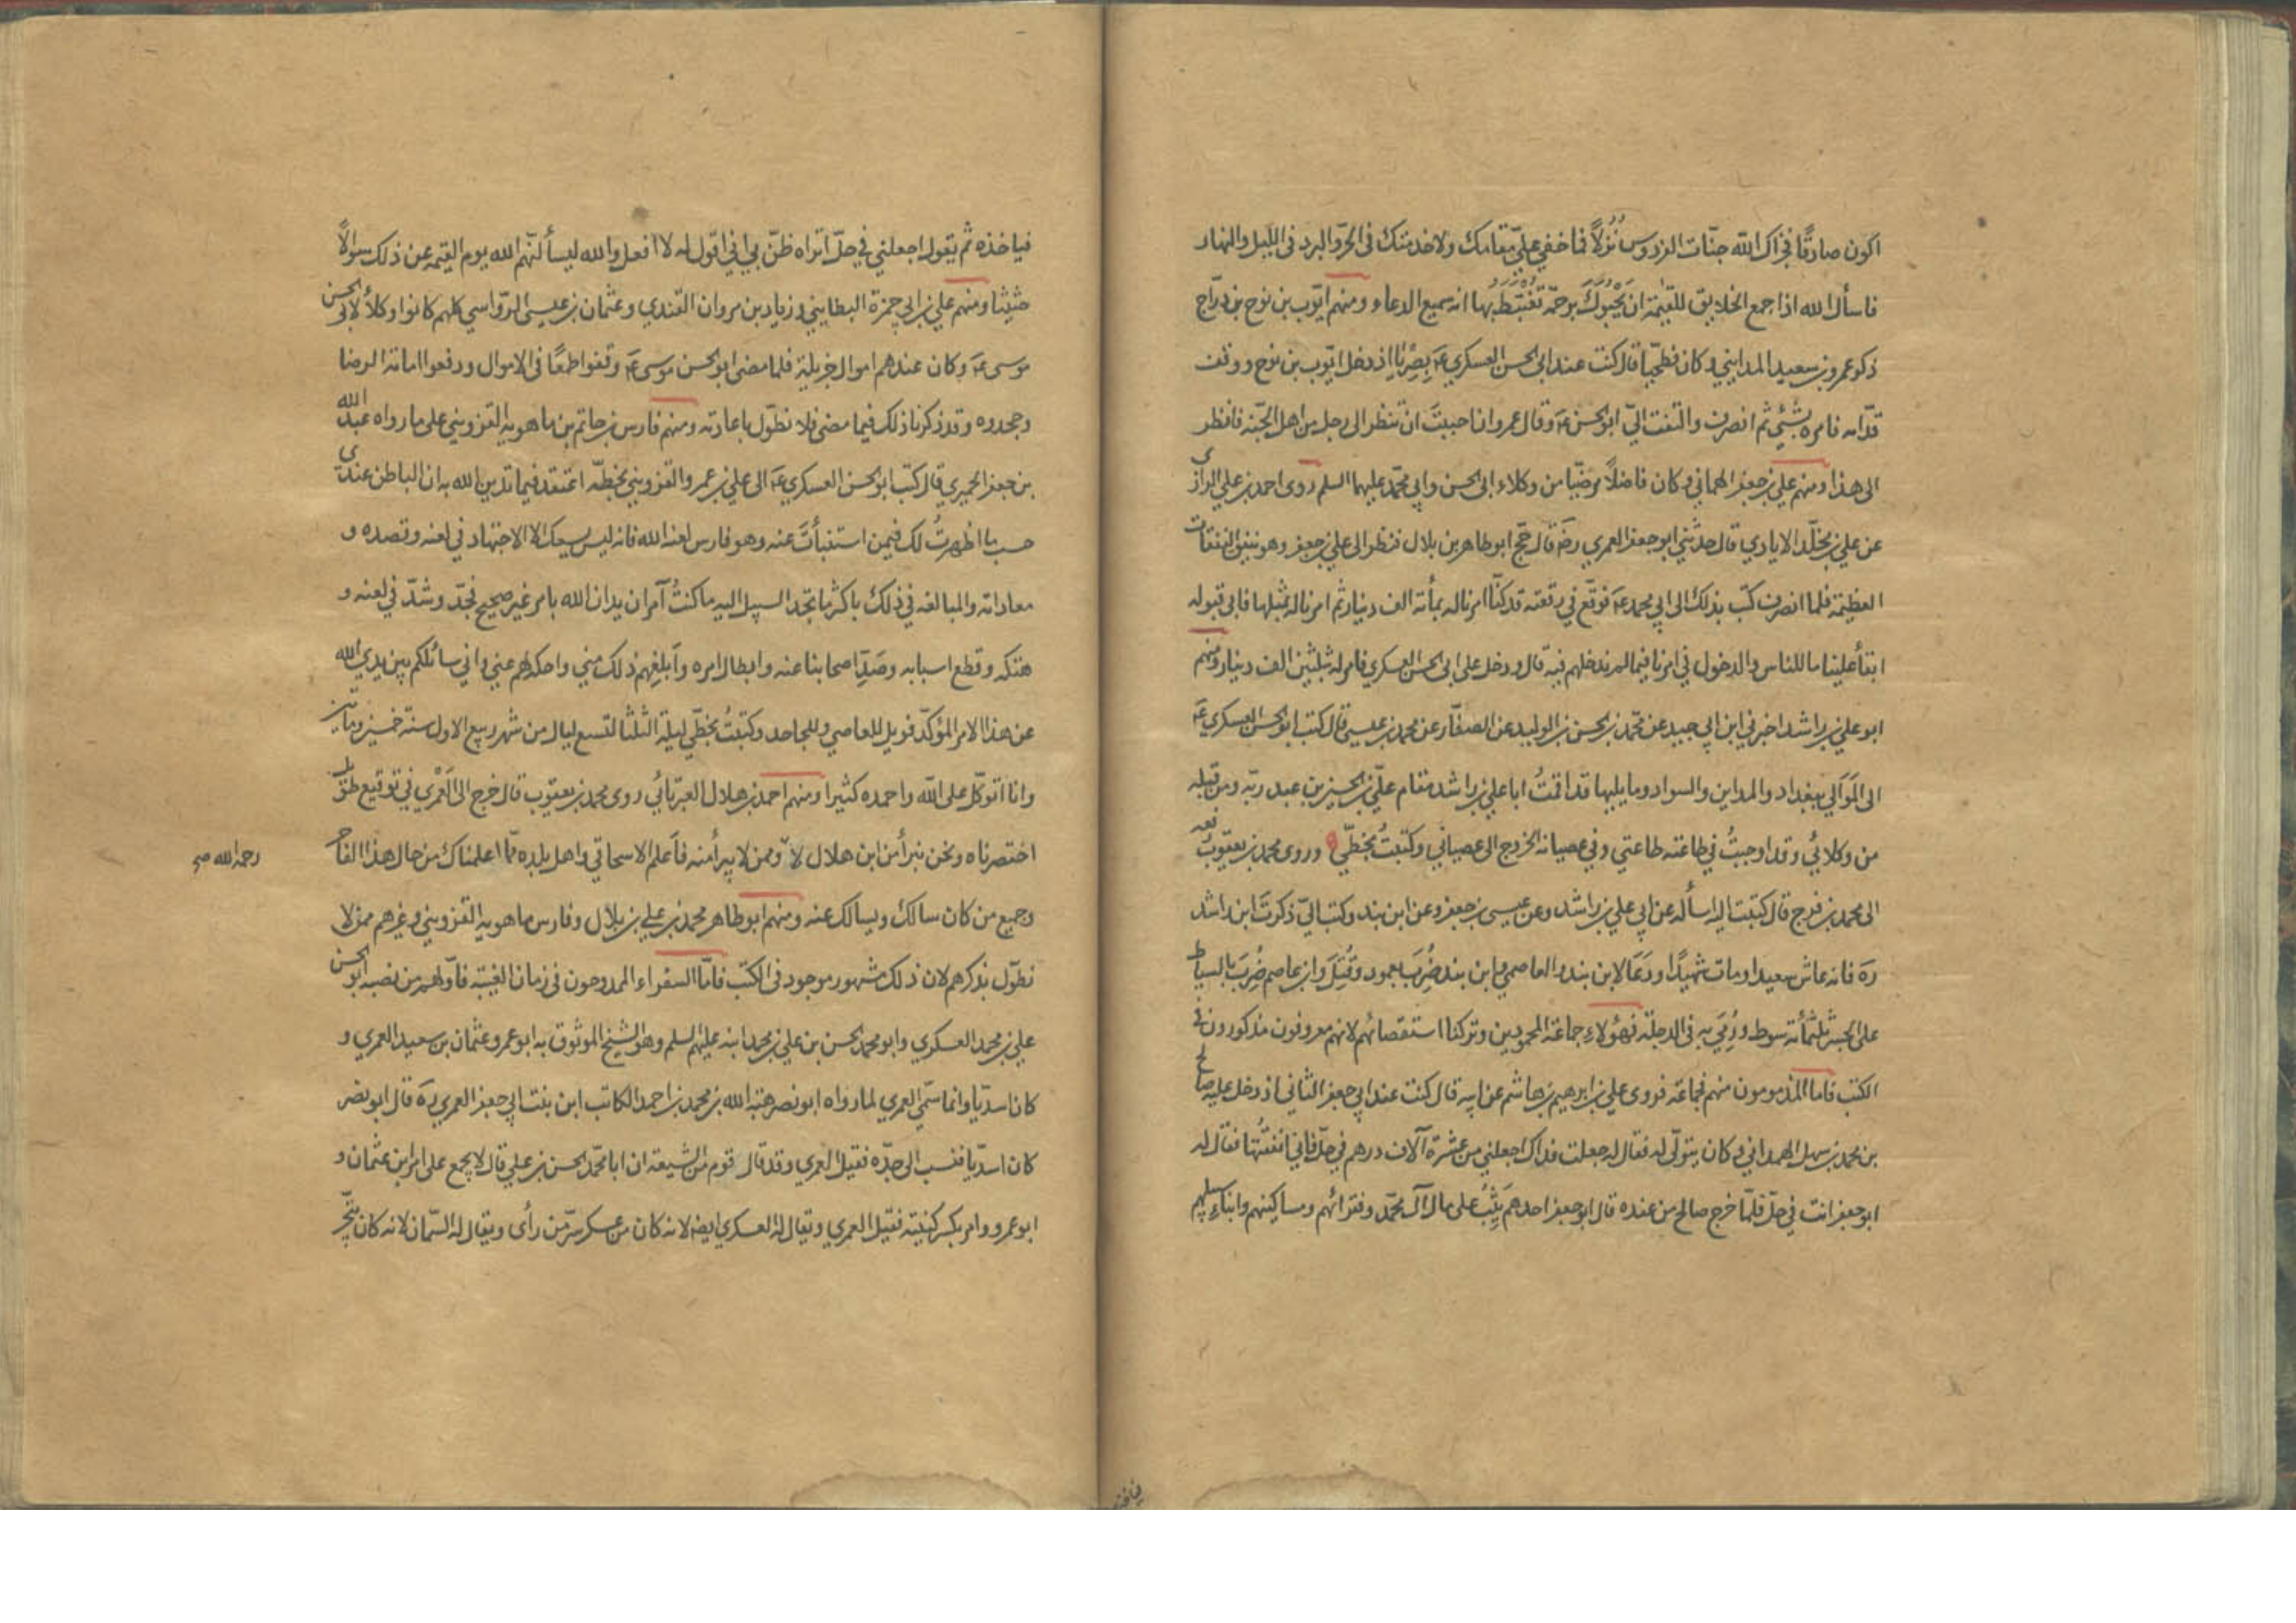 اكون صادقًا فجزاك الله جنّات الفردوس نُزُلًا فما خفي عليّ مقامك ولا خدمتك في الحرّ والبرد في الليل والنهار
فاسأل الله اذا جمع الخلايق للقيٰمة ان يَحْبُوَكَ برحمة تغتبط بها انه سميع الدعاء ومنهم ايّوب بن نوح بن درّاج
ذكر عمرو بن سعيد المدايني وكان فطحيّا قال كنت عند ابي الحسن العسكري عَ بِصِرْيَا اذ دخل ايّوب بن نوح ووقف
قدّامه فامره بشيْء ثم انصرف والتفت اليّ ابو الحسن عَ وقال عمرو ان احببتَ ان تنظر الى رجل من اهل الجنّة فانظر
الى هذا ومنهم علي بن جعفر الهماني وكان فاضلًا مرضيّا من وكلاء ابي الحسن وابي محمّد عليهما السلم روى احمد بن علي الرازي
عن علي بن مخلّد الايادي قال حدثني ابو جعفر العمري رضَ قال حجّ ابو طاهر بن بلال فنظر الى علي بن جعفر وهو ينفق النفقات
العظيمة فلما انصرف كتب بذلك الى ابي محمد عَ فوقّع في رقعته قد كنّا امرنا له بمأئة الف دينار ثم امرنا له بمثلها فابى قبوله
ابقاْ علينا ما للناس والدخول في امرنا فيما لم ندخلهم فيه قال ودخل على ابي الحسن العسكري فامر له بثلثين الف دينار ومنهم
ابو علي بن راشد اخبرني ابن ابي جيد عن محمّد بن الحسن بن الوليد عن الصفّار عن محمد بن عيسى قال كتب ابو الحسن العسكري عَ
الى المَوَالي ببغداد والمداين والسواد وما يليها قد اقمتُ ابا علي بن راشد مقام عليّ بن الحسين بن عبد ربّه ومن قبله
من وكلائي وقد اوجبتُ في طاعته طاعتي وفي عصيانه الخروج الى عصياني وكتبتُ بخطّي وروى محمد بن يعقوب رفعه
الى محمد بن فرج قال كتبت اليه اسأله عن ابي علي بن راشد وعن عيسى بن جعفر وعن ابن بند وكتب اليّ ذكرتَ ابن راشد
ره فانه عاش سعيدا ومات شهيدًا ودَعَا لابن بند والعاصمي وابن بند ضُرِبَ بعمود وقُتِلَ وابن عاصم ضُرِبَ بالسياط
على الجسر ثلثمأئة سوط ورُمِيَ به في الدجلة فهؤلاء جماعة المحمودين وتركنا استقصائهم لانهم معروفون مذكورون في
الكتب فاما المذمومون منهم فجماعة فروى علي بن ابرهيم بن هاشم عن ابيه قال كنت عند ابي جعفر الثاني اذ دخل عليه صالح
بن محمد بن سهل الهمداني وكان يتولّى له فقال له جعلت فداك اجعلني من عشرة آلاف درهم في حلّ فاني انفقتُها فقال له
ابو جعفر انت في حلّ فلمّا خرج صالح من عنده قال ابو جعفر احدهم يَثِبُ على مال آل محمّد وفقرائهم ومساكينهم وابناء سبيلهم
فياخذه ثم يقول اجعلني في حلّ اتراه ظنّ بي اني اقول له لا افعل والله ليسألنّهم الله يوم القيمة عن ذلك سوالًا
حثيثا ومنهم علي بن ابي حمزة البطايني وزياد بن مروان القندي وعثمان بن عيسى الرّواسي كلهم كانوا وكلاْء لابي الحسن
موسى عَ وكان عندهم اموال جزيلة فلما مضى ابو الحسن موسى عَ وقفوا طمعًا في الاموال ودفعوا امامة الرضا
وجحدوه وقد ذكرنا ذلك فيما مضى فلا نطوّل باعادته ومنهم فارس بن حاتم بن ماهويه القزويني على ما رواه عبد الله
بن جعفر الحميري قال كتب ابو الحسن العسكري عَ الى علي بن عمرو القزويني بخطّه اعتقد فيما تدين الله به ان الباطن عندي
حسب ما اظهرتُ لك فيمن استنبأتَ عنه وهو فارس لعنه الله فانه ليس يسعك الا الاجتهاد في لعنه وقصده و
معاداته والمبالغة في ذلك باكثر ما تجد السبيل اليه ما كنتُ آمر ان يدان الله بامر غير صحيح فجدّ وشدّ في لعنه و
هتكه وقطع اسبابه وصَدِّ اصحابنا عنه وابطال امره وأبلغهم ذلك منّي واحكه لهم عني واني سائلكم بين يدي الله
عن هذا الامر المؤكّد فويل للعاصي وللجاحد وكتبتُ بخطّي ليلة الثلثا لتسع ليال من شهر ربيع الاول سنة خمسين ومأتين
وانا اتوكّل على الله واحمده كثيرا ومنهم احمد بن هلال العبرتائي روى محمد بن يعقوب قال خرج الى العَمْري في توقيع طويل
اختصرناه ونحن نبرأ من ابن هلال لا وممن لا يبرأ منه فأعلم الاسحاقي واهل بلده ممّا اعلمناك من حال هذا الفاجر
رحمه الله صح
وجميع من كان سالك ويسالك عنه ومنهم ابو طاهر محمد بن علي بن بلال وفارس ماهويه القزويني وغيرهم ممن لا
نطوّل بذكرهم لان ذلك مشهور موجود في الكتب فامّا السفراء الممدوحون في زمان الغيبة فاولهم من نصبه ابو الحسن
علي بن محمد العسكري وابو محمد الحسن بن علي بن محمد ابنه عليهم السلم وهو الشيخ الموثوق به ابو عمرو عثمان بن سعيد العمري و
كان اسديّا وانما سمّي العمري لما رواه ابو نصر هبة الله بن محمد بن احمد الكاتب ابن بنت ابي جعفر العمري رَه قال ابو نصر
كان اسديّا فنسب الى جدّه فقيل العمري وقد قال قوم من الشيعة ان ابا محمّد الحسن بن علي قال لا يجمع على امر ابن عثمان و
ابو عمرو وامر بكسر كنيته فقيل العمري ويقال له العسكري ايضا لانه كان من عسكر سرّ من رأى ويقال له السّمان لانه كان يتّجر